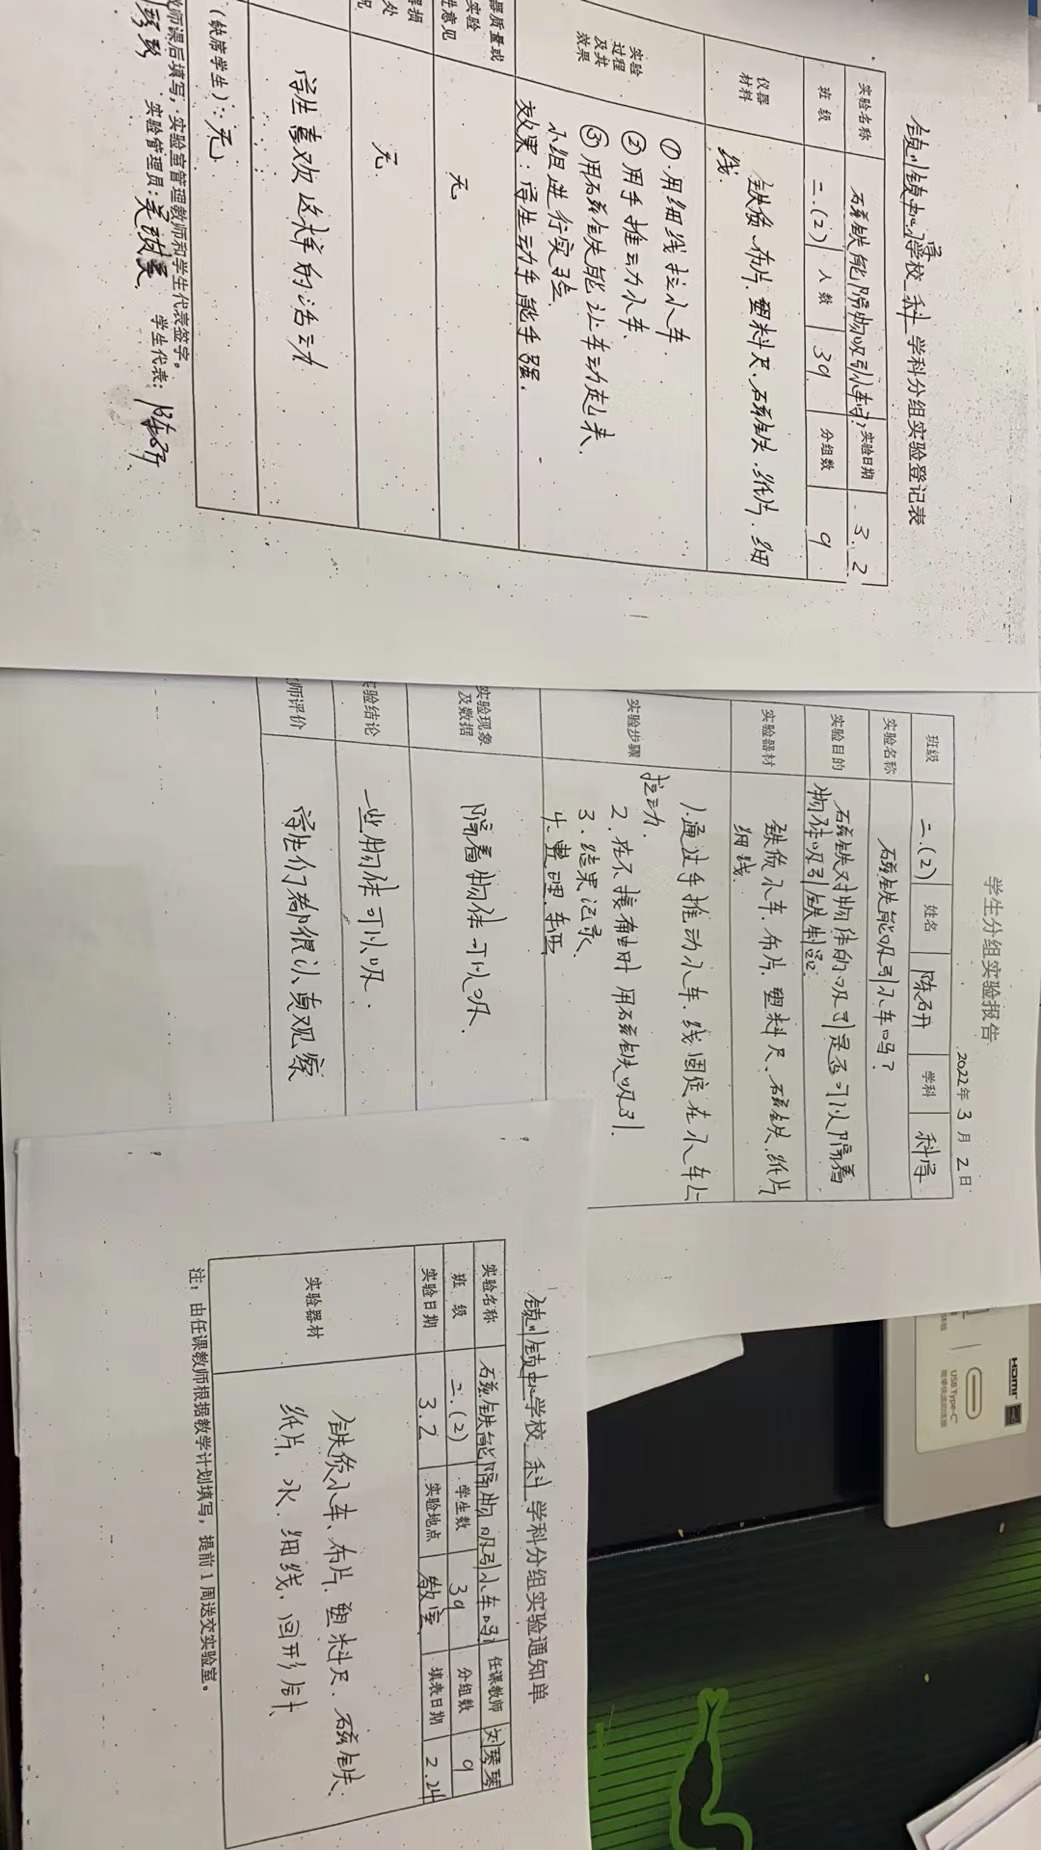 镇中心学校 科 学科分组实验登记表
实验名称 石兹铁能隔物吸引小车吗? 实验日期 3.2
班 级 二.(2) 人 数 39 分组数 9
仪器
材料
铁质、布片、塑料尺、石兹铁、纸片、细
线.
实验
过程
及其
效果
①.用细线拉小车.
②用手推动小车.
③用石兹铁能让车动走来、
小组进行实验.
效果:学生动手能手强.
器质量或
实验
意见
无
处
无.
学生喜欢这样的活动
(缺席学生):无
师课后填写,实验室管理教师和学生代表签字。
实验管理员: 学生代表:
学生分组实验报告
2022年 3 月 2日
班级 二.(2) 姓名 陈 学科 科学
实验名称 石兹铁能吸引小车吗?
实验目的 石兹铁对物体的吸引是否可以隔着
物体吸引铁制品.
实验器材 铁质小车、布片、塑料尺、石兹铁、纸片
细线.
实验步骤
1.通过手推动小车、线固定在小车上
拉动.
2.在不接触时用石兹铁吸引.
3.结果记录、
4.整理
实验现象
及数据
隔着物体可以吸.
实验结论 一些物体可以吸.
师评价 学生们都很认真观察
镇中心学校 科 学科分组实验通知单
实验名称 石兹铁能隔物吸引小车吗 任课教师 刘琴琴
班 级 二.(2) 学生数 39 分组数 9
实验日期 3.2 实验地点 教室 填表日期 2.24
实验器材
铁质小车、布片、塑料尺、石兹铁、
纸片、水、细线、回形针
注:由任课教师根据教学计划填写,提前1周送交实验室。
HDMI
USB Type-C